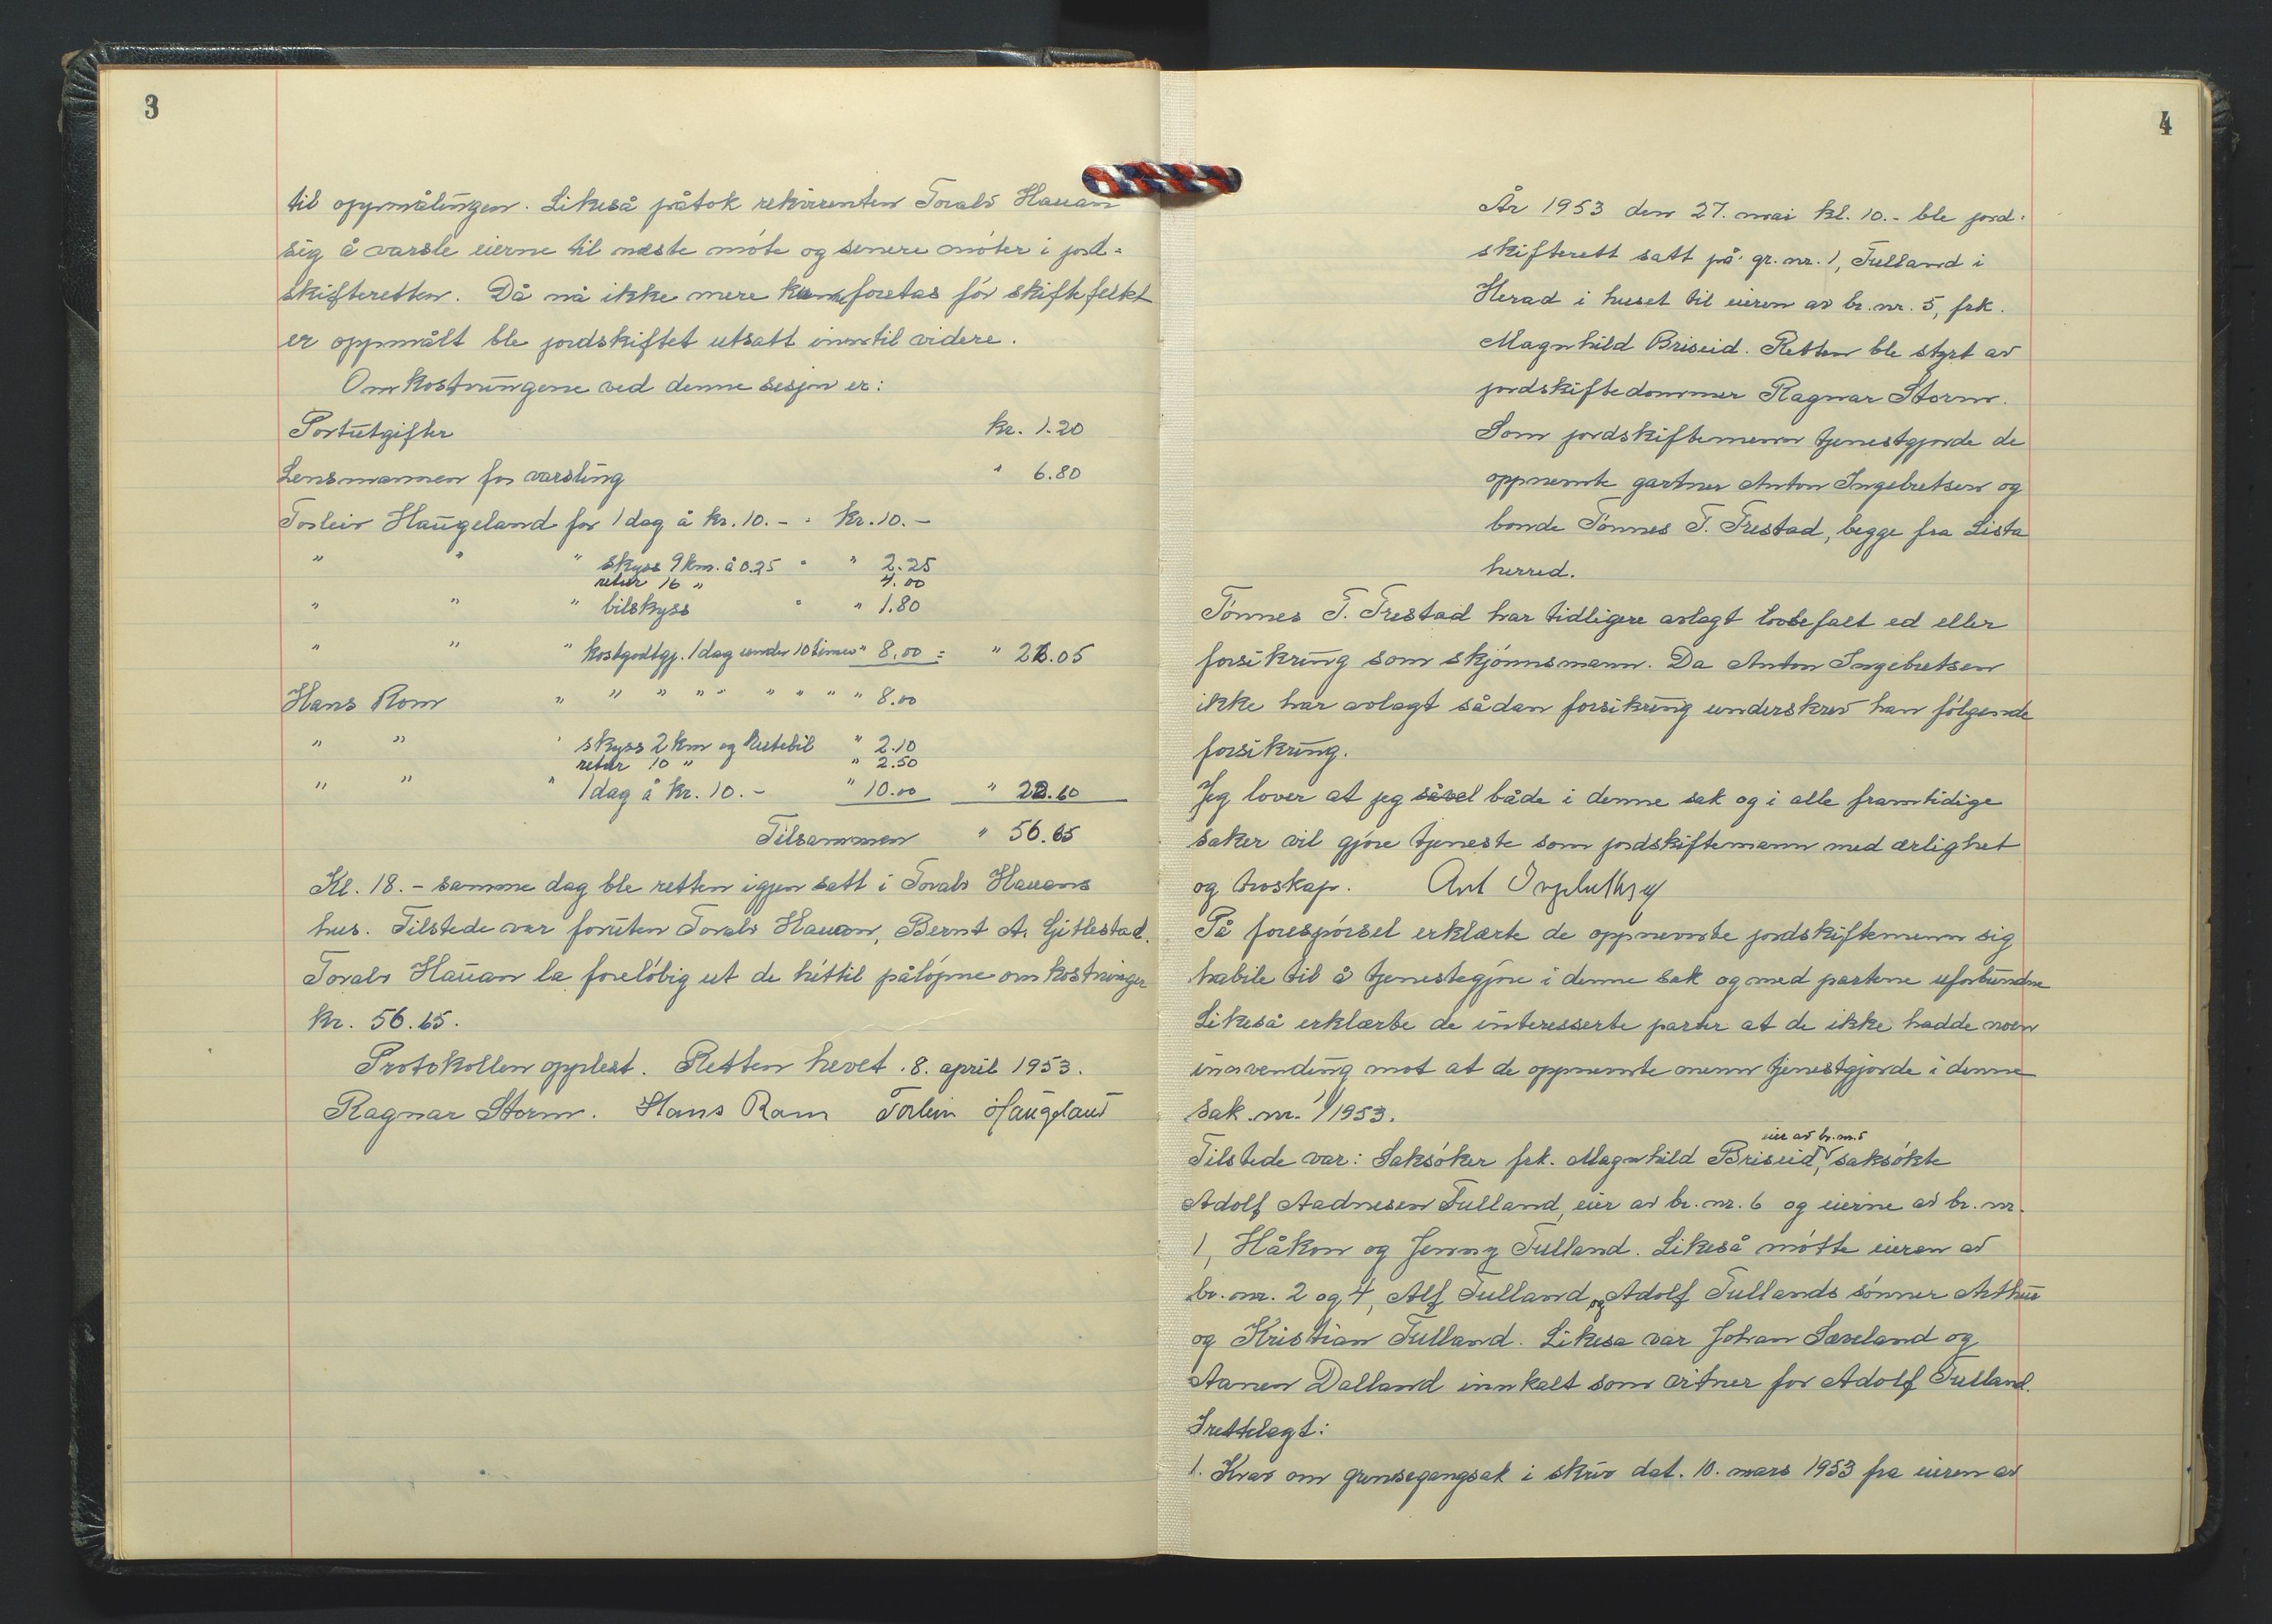 3
til oppmålingen. Likeså påtok rekvirenten Toralv Hauan
sig å varsle eierne til næste møte og senere møter i jord-
skifteretten. Då nå ikke mere kunne foretas før skiftefeltet
er oppmålt ble jordskiftet utsatt inntil videre.
Omkostningene ved denne sesjon er:
Portutgifter kr. 1.20
Lensmannen for varsling " 6.80
Torleiv Haugeland for 1 dag å kr. 10.- = kr. 10.-
" " " skyss 9 km. å 0.25 = " 2.25
retur 16 " 4.00
" " " bilskyss = " 1.80
" " " kostgodtgj. 1 dag under 10 timer " 8.00 = " 26.05
Hans Rom " " " " " " " " " 8.00
" " " skyss 2 km og rutebil " 2.10
retur 10 " " 2.50
" " " 1 dag å kr. 10.- " 10.00 " 22.60
Tilsammen " 56.65
Kl. 18.- samme dag ble retten igjen satt i Toralv Hauans
hus. Tilstede var foruten Toralv Hauan, Bernt A. Gitlestad.
Toralv Hauan la foreløbig ut de hittil påløpne omkostninger
kr. 56.65.
Protokollen opplest. Retten hevet. 8. april 1953.
Ragnar Storm. Hans Rom Torleiv Haugeland
4
År 1953 den 27. mai kl. 10.- ble jord-
skifterett satt på gr. nr. 1, Tulland i
Herad i huset til eieren av br. nr. 5, frk.
Magnhild Briseid. Retten ble styrt av
jordskiftedommer Ragnar Storm.
Som jordskiftemenn tjenestgjorde de
oppnemte gartner Anton Ingebretsen og
bonde Tønnes T. Trestad, begge fra Lista
herred.
Tønnes T. Trestad har tidligere avlagt lovbefalt ed eller
forsikring som skjønnsmann. Da Anton Ingebretsen
ikke har avlagt sådan forsikring underskrev han følgende
forsikring.
Jeg lover at jeg såvel både i denne sak og i alle framtidige
saker vil gjøre tjeneste som jordskiftemann med ærlighet
og troskap. Ant Ingebretsen
På forespørsel erklærte de oppnevnte jordskiftemenn sig
habile til å tjenestegjøre i denne sak og med partene uforbundne
Likeså erklærte de interesserte parter at de ikke hadde noen
innvending mot at de oppnemte menn tjenestgjorde i denne
sak. nr. 1/1953.
eier av br. nr. 5
Tilstede var: Saksøker frk. Magnhild Briseid, saksøkte
Adolf Aadnesen Tulland, eier av br. nr. 6 og eierne av br. nr.
1, Håkon og Jenny Tulland. Likeså møtte eieren av
br. nr. 2 og 4, Alf Tulland og Adolf Tullands sønner Arthur
og Kristian Tulland. Likesa var Johan Sæveland og
Aanen Dalland innkalt som vitner for Adolf Tulland.
Irettelagt:
1. Krav om grensegangsak i skriv dat. 10. mars 1953 fra eieren av